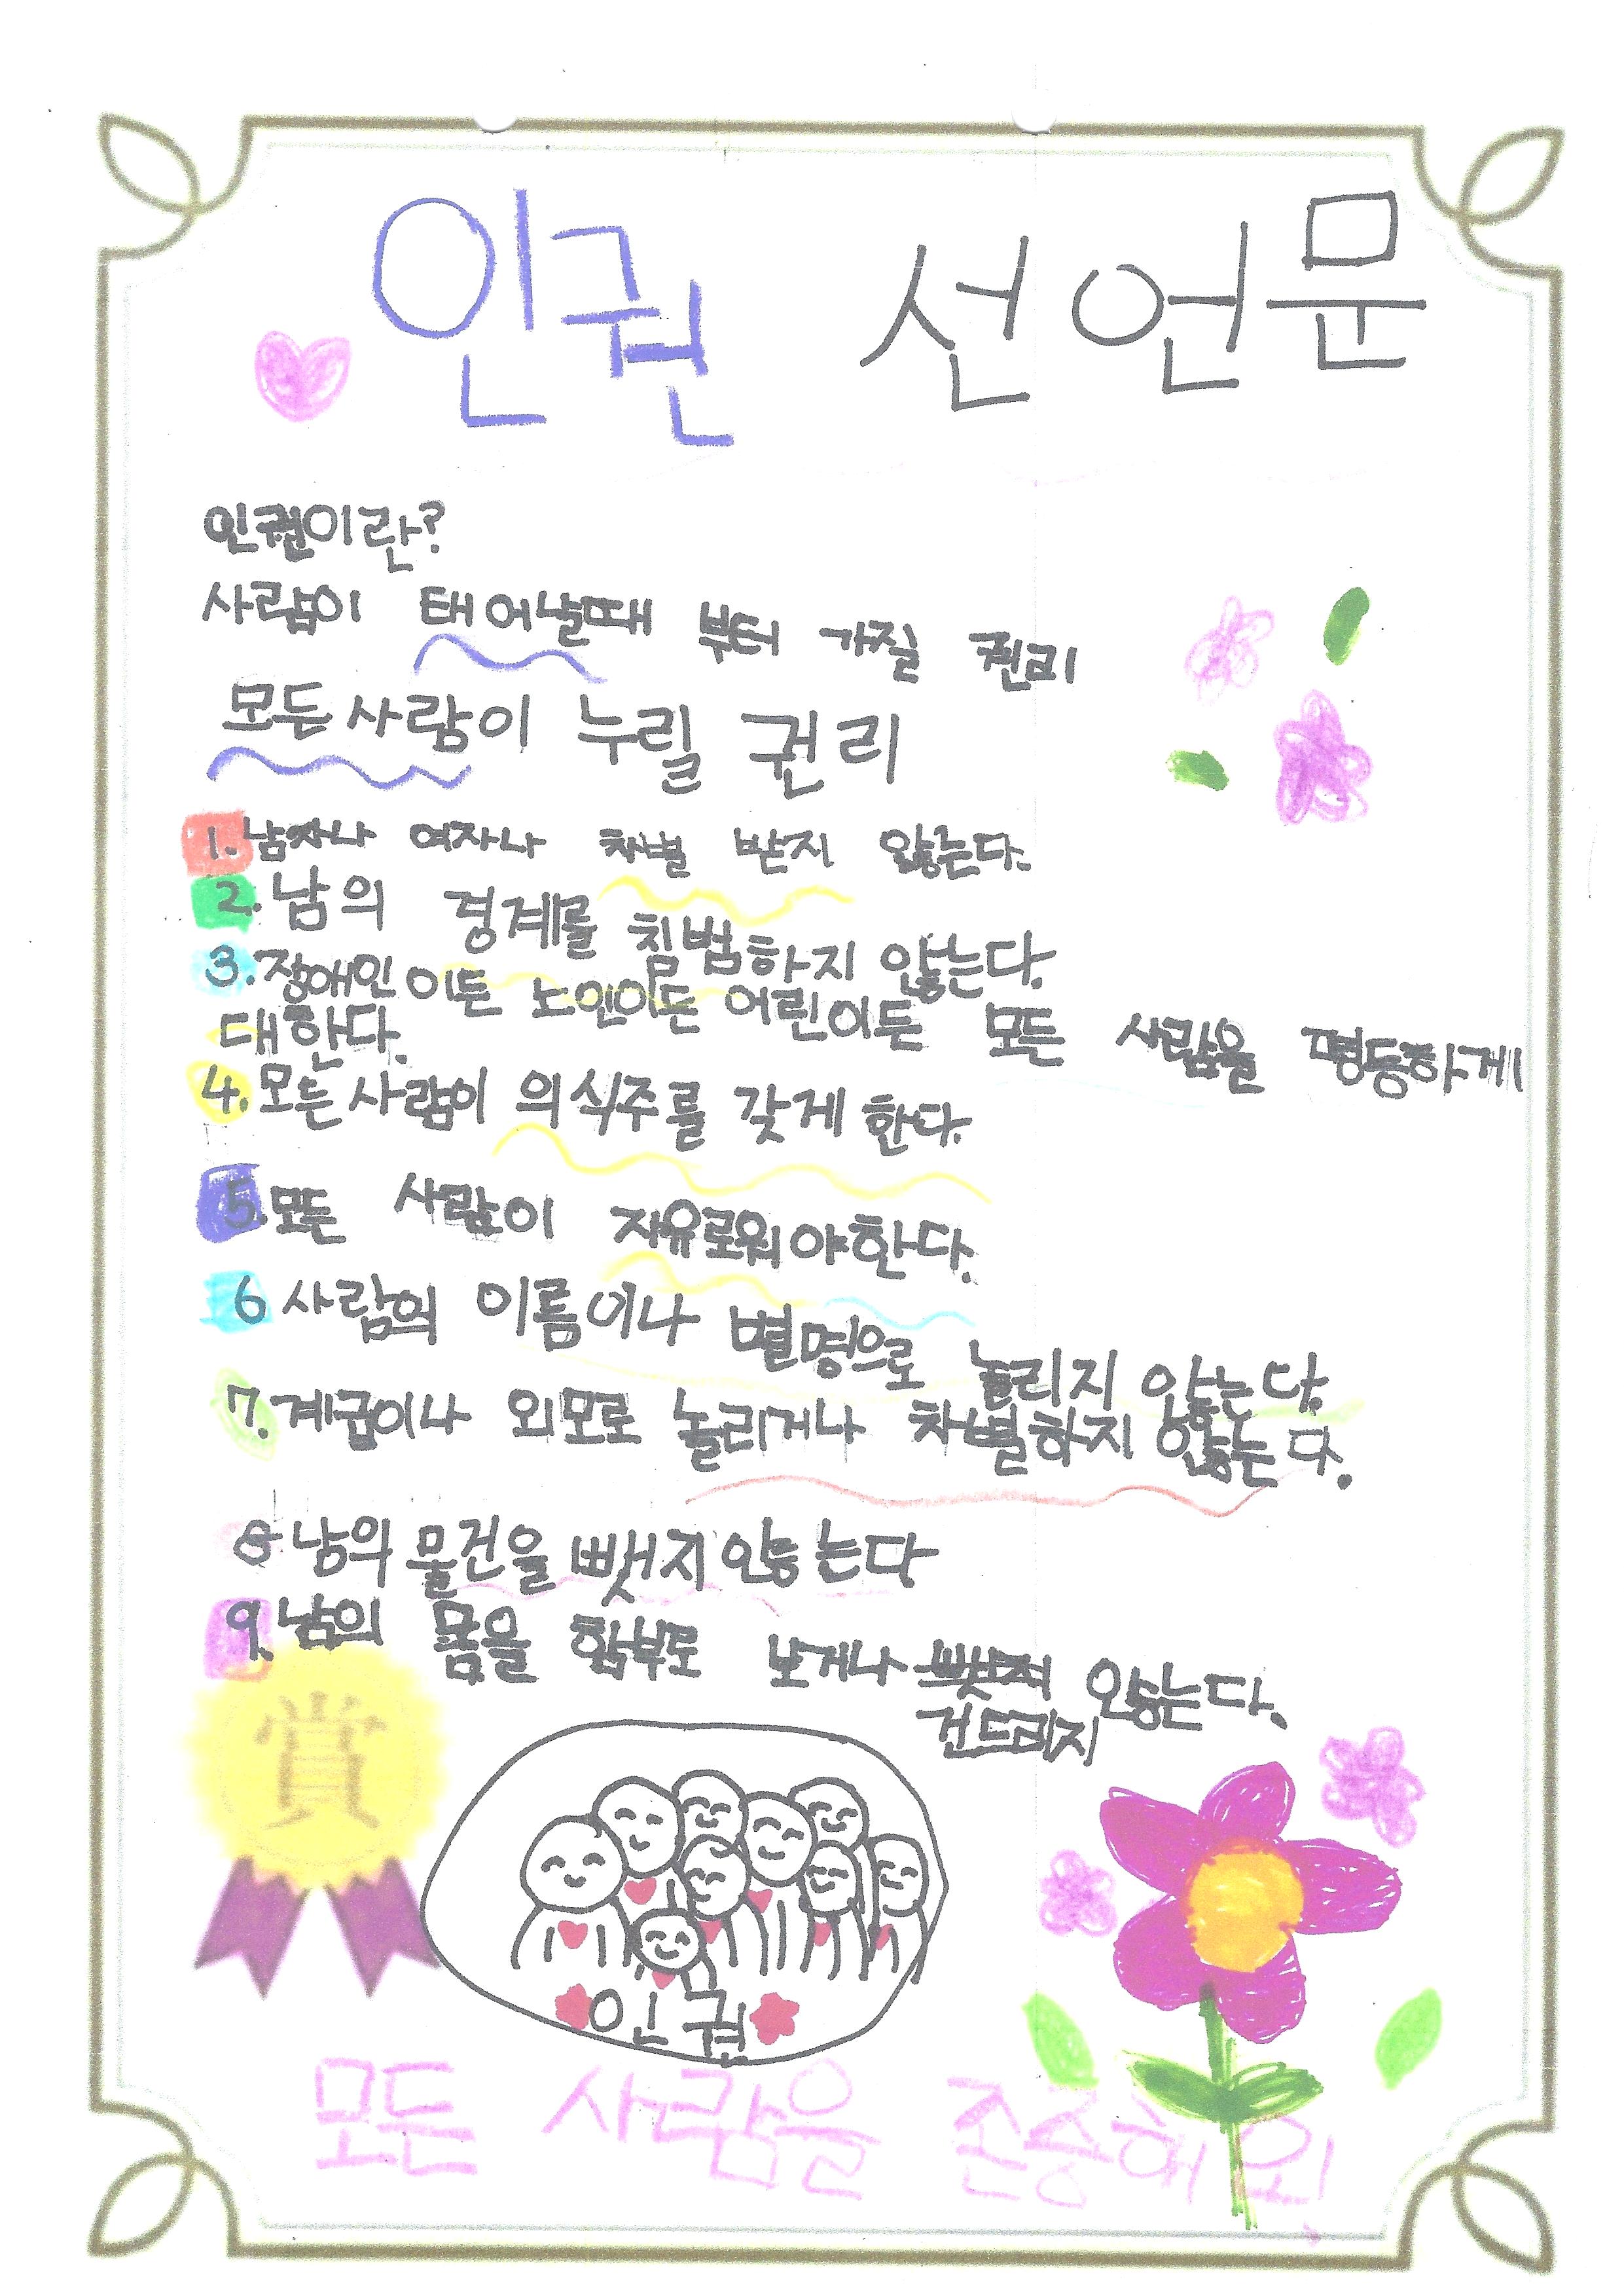 인권 선언문
인권이란?
사람이 태어날때 부터 가질 권리
모든 사람이 누릴 권리
1. 남자나 여자나 차별 받지 않는다.
2. 남의 경계를 침범하지 않는다.
3. 장애인이든 노인이든 어린이든 모든 사람을 평등하게
대한다.
4. 모든 사람이 의식주를 갖게 한다.
5. 모든 사람이 자유로워야한다.
6 사람의 이름이나 별명으로 놀리지 않는다.
7. 계급이나 외모로 놀리거나 차별하지 않는다.
8 남의 물건을 뺏지 않는다
9. 남의 몸을 함부로 보거나 뺏지 않는다.
건드리지
賞
인권
모든 사람을 존중해요!